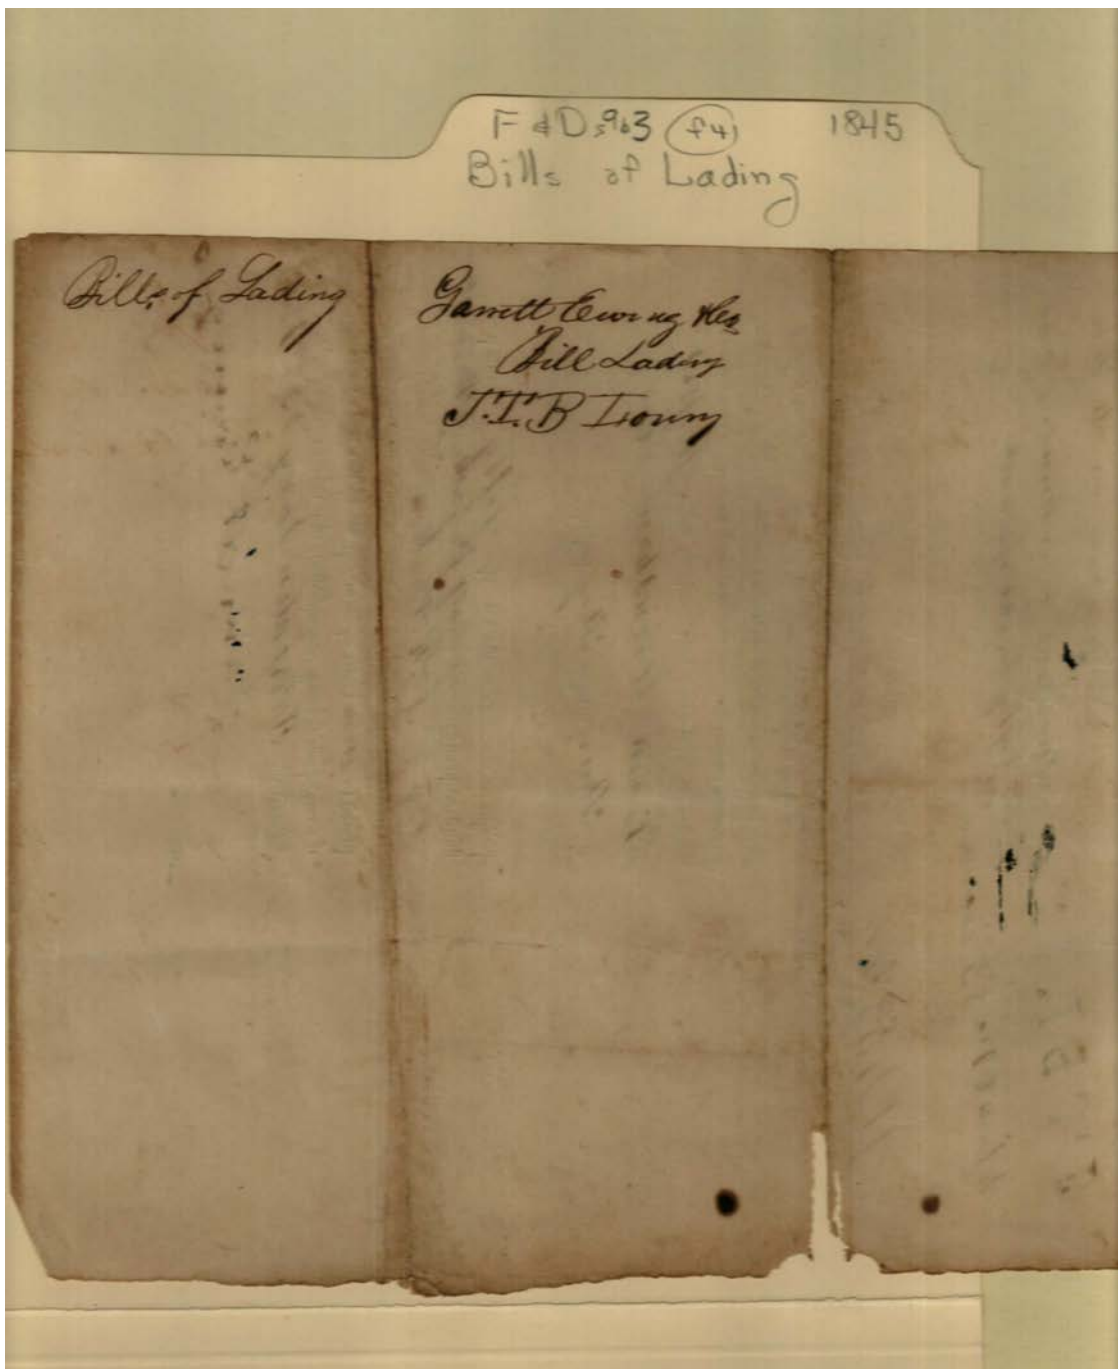 F & D 963 (f4) 1845
Bills of Lading
Bills of Lading
Garrett Ewing & Co
Bill Lading
J.T.B